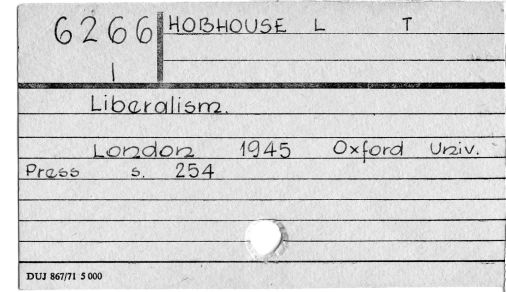 6266 HOBHOUSE L T
I
Liberalism.
London 1945 Oxford Univ.
Press s. 254
DUJ 867/71 5 000